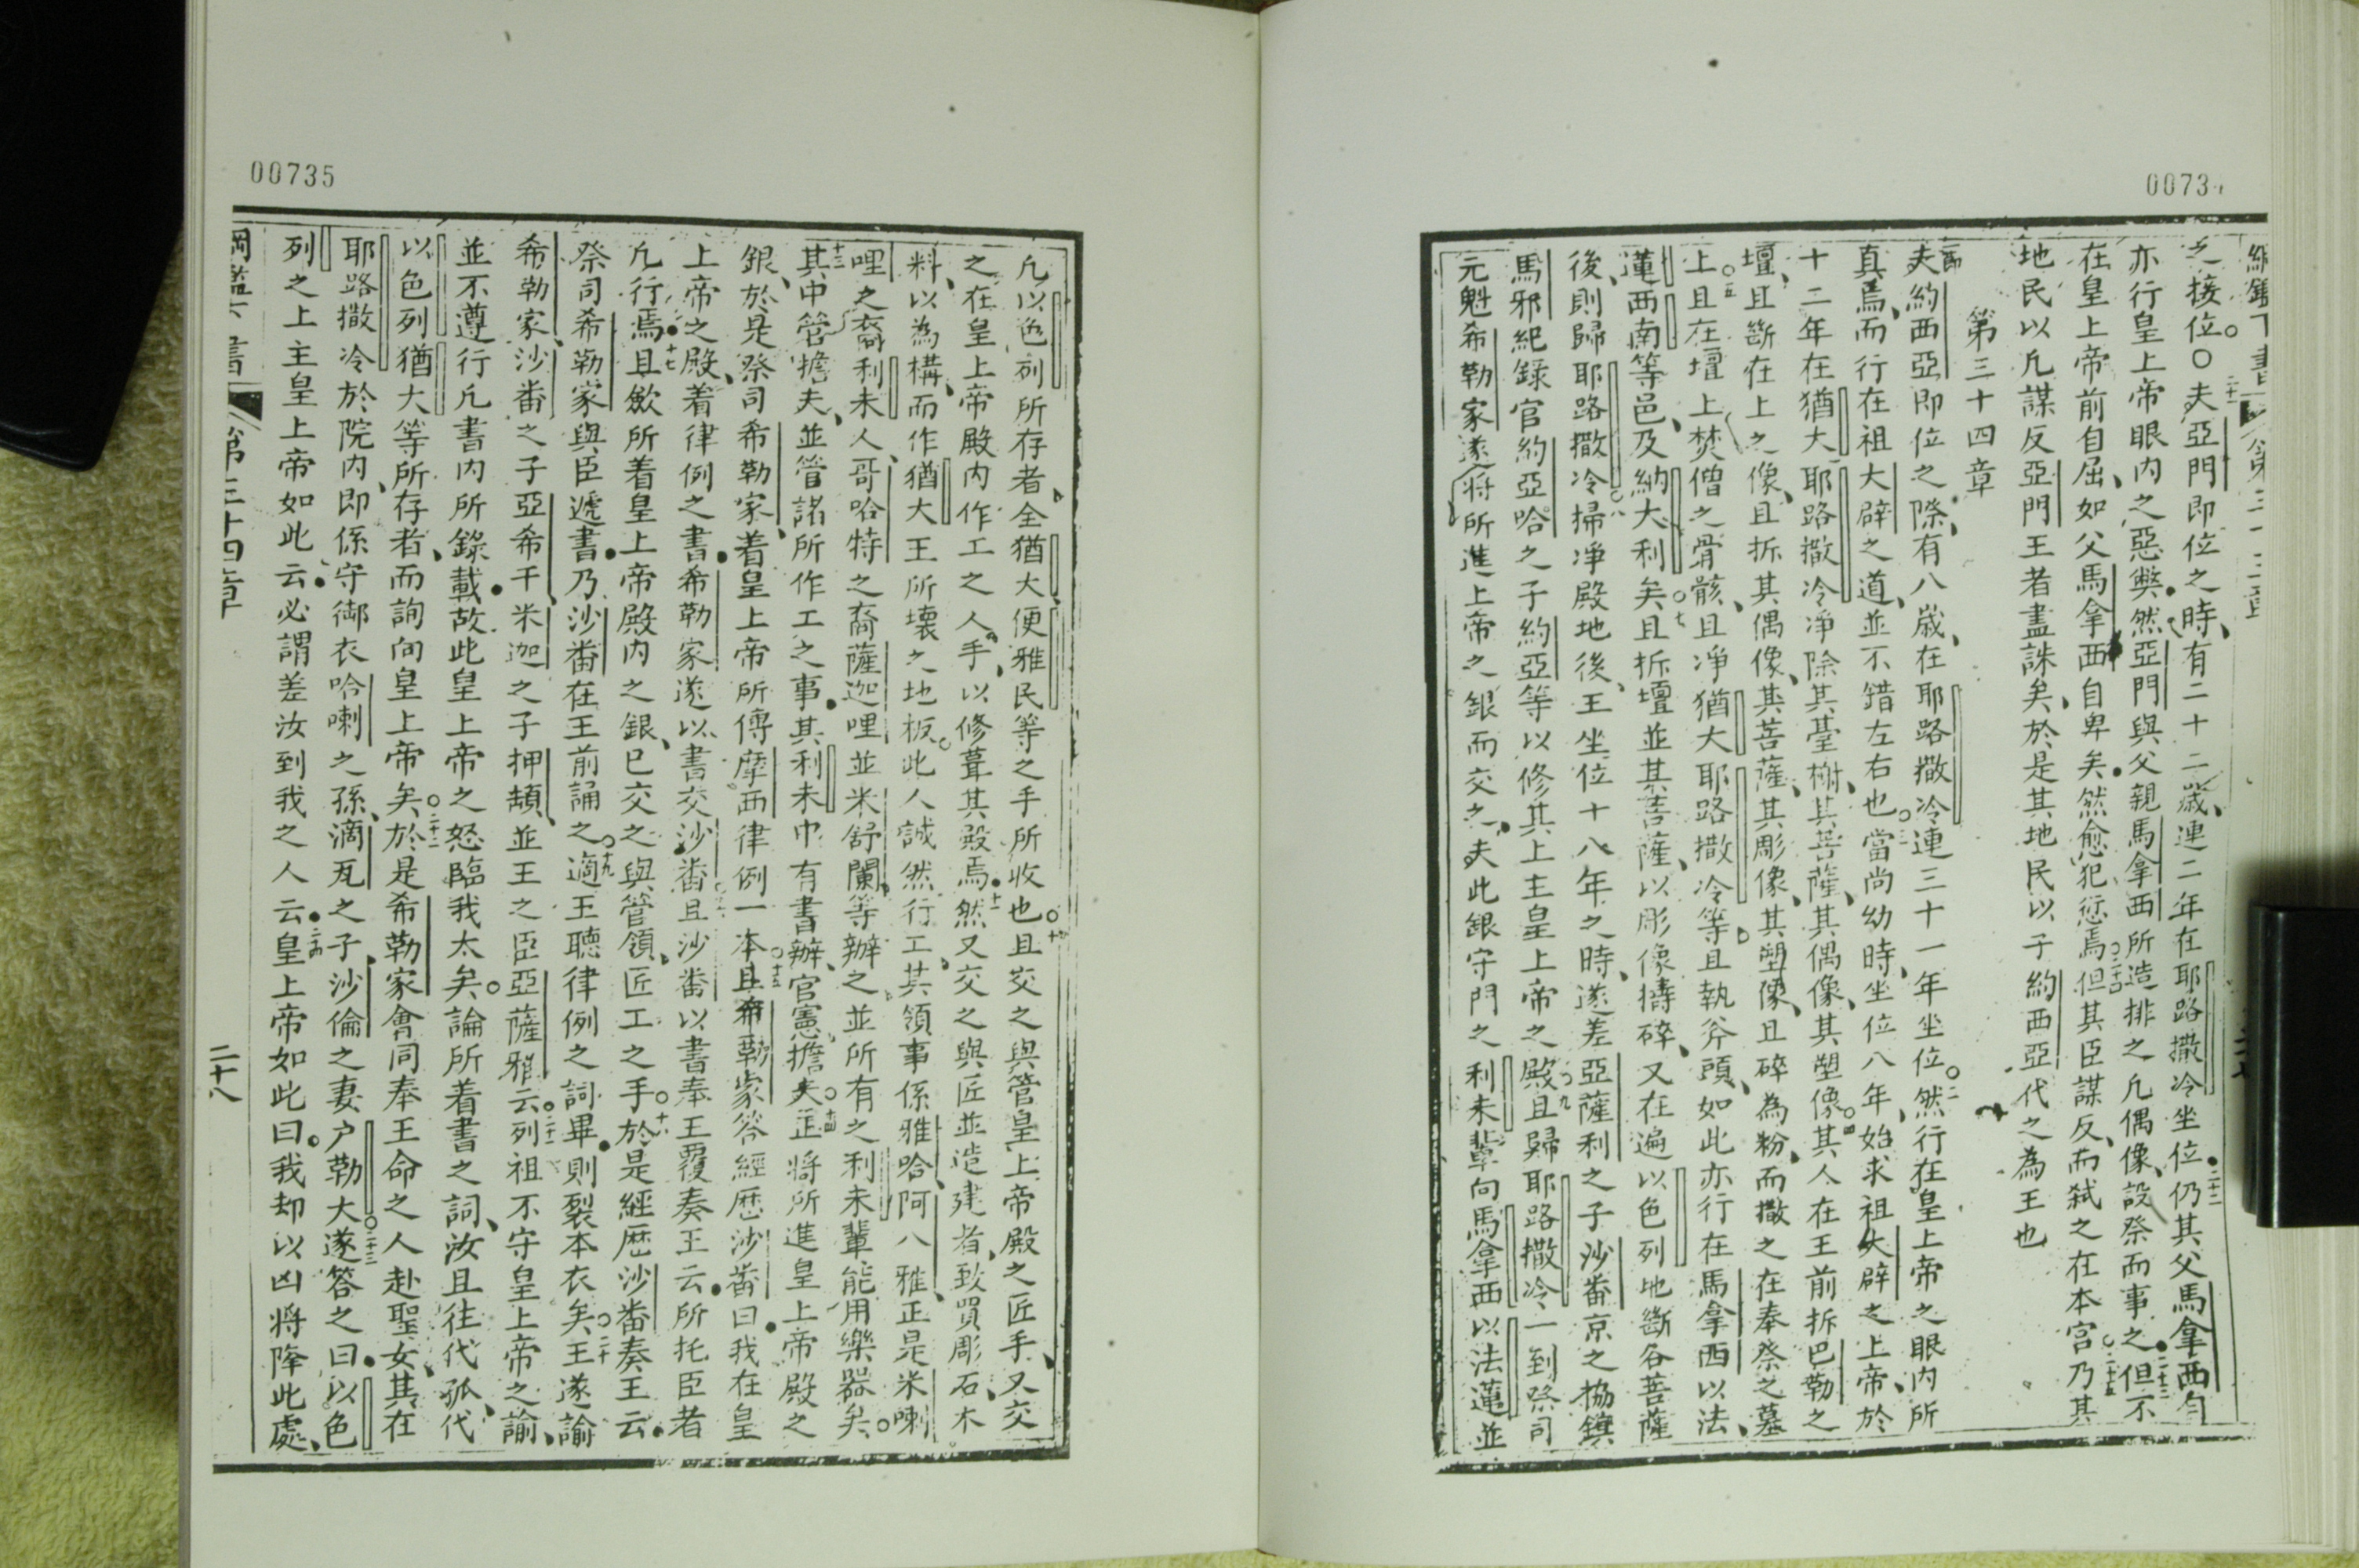 00734
綱鑑下書 第三十三章
之接位。〇二十一夫亞門即位之時、有二十二歲、連二年在耶路撒冷坐位。二十二仍其父馬拿西有
亦行皇上帝眼內之惡獘、然亞門與父親馬拿西所造排之凢偶像、設祭而事之。二十三但不
在皇上帝前自屈、如父馬拿西自卑矣。然愈犯愆焉。二十四但其臣謀反、而弒之在本宮。二十五乃其
地民以凢謀反亞門王者盡誅矣、於是其地民以子約西亞代之為王也
第三十四章
夫約西亞即位之際、有八歲、在耶路撒冷連三十一年坐位。二然行在皇上帝之眼內所
真焉、而行在祖大辟之道、並不錯左右也。三當尚幼時、坐位八年、始求祖大辟之上帝、於
十二年在猶大、耶路撒冷凈除其臺榭、其菩薩、其偶像、其塑像。四其人在王前拆巴勒之
壇、且斷在上之像、且拆其偶像、其菩薩、其彫像、其塑像、且碎為粉、而撒之在奉祭之墓
上。五且在壇上焚僧之骨骸、且凈猶大耶路撒冷等。六且執斧頭、如此亦行在馬拿西以法、
蓮西南等邑、及納大利矣。七且拆壇並其菩薩、以彫像擣碎、又在遍以色列地斷各菩薩
後、則歸耶路撒冷。八掃凈殿地後、王坐位十八年之時、遂差亞薩利之子沙番京之協鎮
馬邪紀錄官約亞哈之子約亞等以修其上主皇上帝之殿。九且歸耶路撒冷一到祭司
元魁希勒家、遂將所進上帝之銀而交之。夫此銀守門之利未輩向馬拿西以法蓮並
00735
凢以色列所存者、全猶大便雅民等之手所收也。十且交之與管皇上帝殿之匠手、又交
之在皇上帝殿內作工之人手、以修葺其殿焉。十一然又交之與匠並造建者、致買彫石、木
料、以為構、而作猶大王所壞之地板。此人誠然行工、其領事係雅哈、阿八雅正是米喇
哩之裔利未人、哥哈特之裔薩迦哩並米舒闌、等辦之並所有之利未輩能用樂器矣。
十三其中管擔夫、並管諸所作工之事。其利未巾有書辦、官憲、擔夫。十四正將所進皇上帝殿之
銀、於是祭司希勒家、着皇上帝所傳摩西律例一本。十五且希勒家答經歷沙番曰。我在皇
上帝之殿、着律例之書。希勒家遂以書交沙番。十六且沙番以書奉王覆奏王云。所托臣者
凢行焉。十七且歛所着皇上帝殿內之銀、已交之與管領、匠工之手。十八於是經歷沙番奏王云。
祭司希勒家與臣遞書。乃沙番在王前誦之。十九適王聽律例之詞畢。則裂本衣矣。二十王遂諭
希勒家、沙番之子亞希千、米迦之子押頡、並王之臣亞薩雅云。二十一列祖不守皇上帝之諭、
並不遵行凢書內所錄載。故此皇上帝之怒臨我太矣。論所着書之詞、汝且往代孤、代
以色列猶大等所存者、而詢向皇上帝矣。二十二於是希勒家會同奉王命之人赴聖女、其在
耶路撒冷於院內、即係守御衣哈喇之孫、滴瓦之子、沙倫之妻户勒大。二十三遂答之曰。以色
列之上主皇上帝如此云。必謂差汝到我之人云。二十四皇上帝如此曰。我却以凶將降此處、
綱鑑下書 第三十四章 二十八